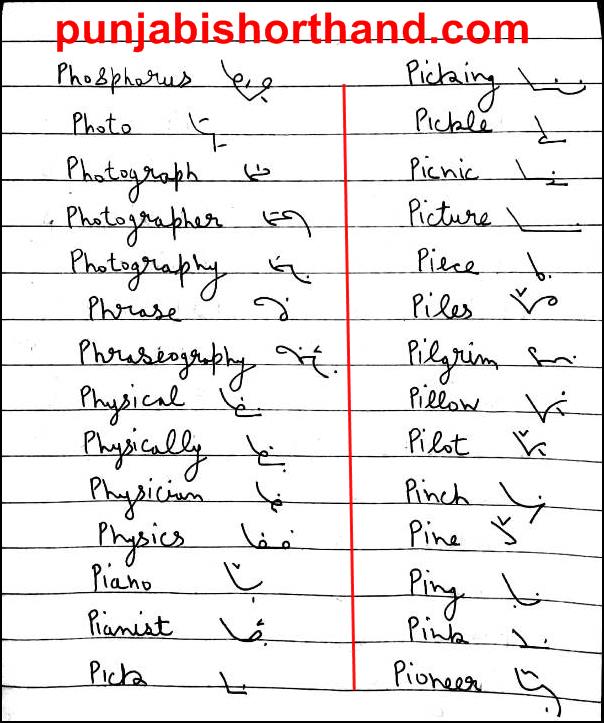 punjabishorthand.com
Phosphorus
Photo
Photograph
Photographer
Photography
Phrase
Phraseography
Physical
Physically
Physician
Physics
Piano
Pianist
Pick
Picking
Pickle
Picnic
Picture
Piece
Piles
Pilgrim
Pillow
Pilot
Pinch
Pine
Ping
Pink
Pioneer